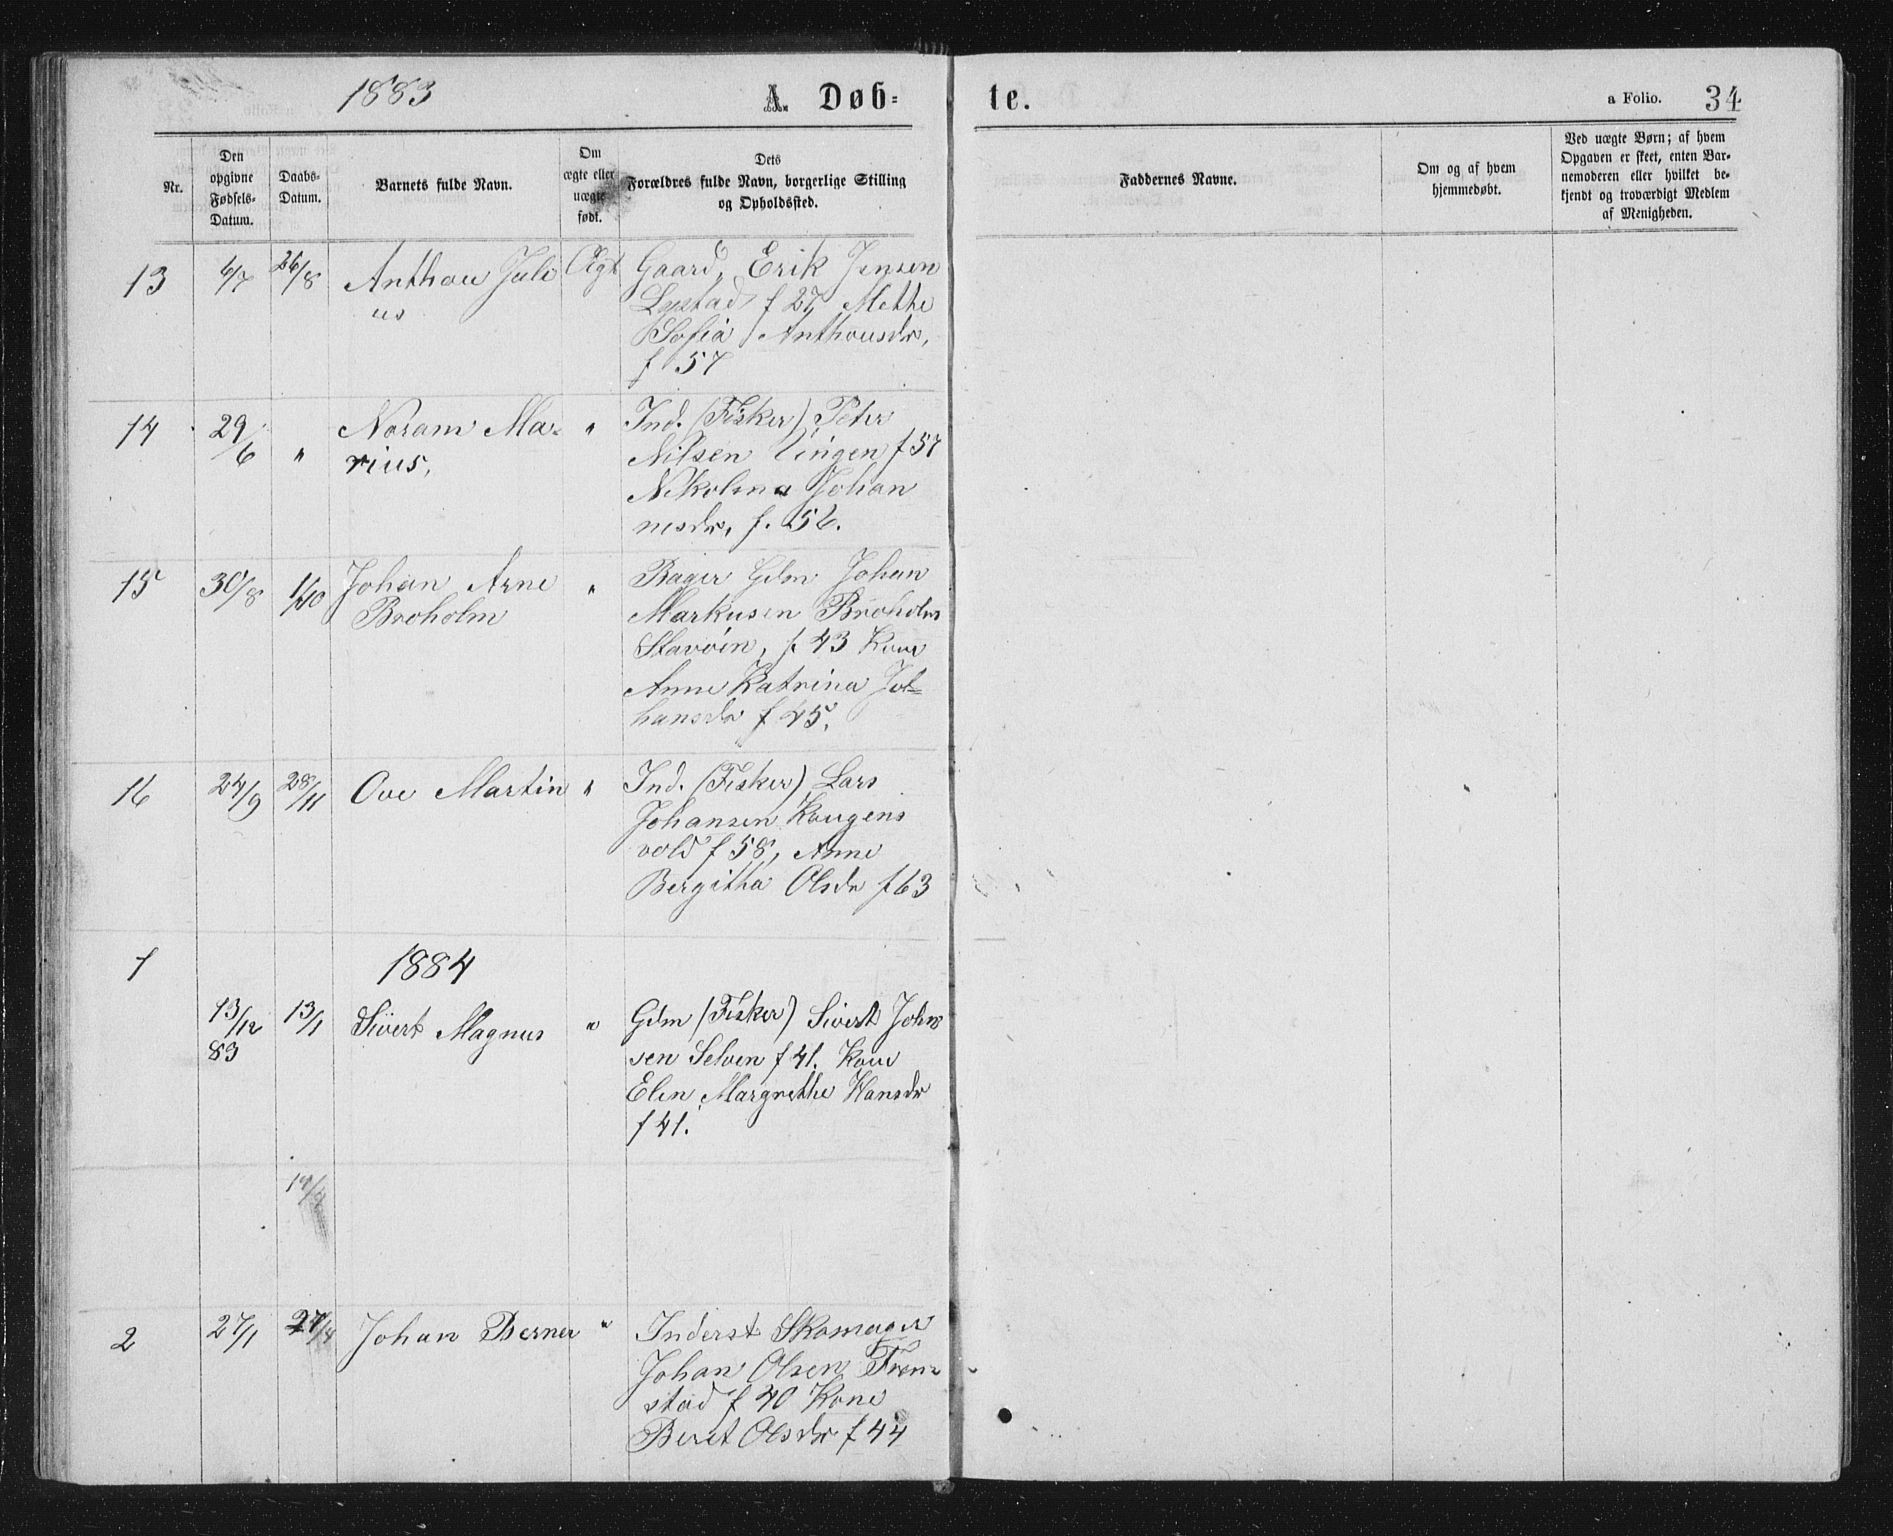 1883 A. Døb= te. a Folio. 34
Nr.
Den opgivne Fødsels-Datum.
Daabs-Datum.
Barnets fulde Navn.
Om ægte eller uægte født.
Dets Forældres fulde Navn, borgerlige Stilling og Opholdssted.
Faddernes Navne.
Om og af hvem hjemmedøbt.
Ved uægte Børn; af hvem Opgaven er skeet, enten Barnemoderen eller hvilket bekjendt og troværdigt Medlem af Menigheden.
13 6/7 26/8 Anthon Juli Ægt Gaard, Erik Jensen
us Lystad f 27, Methe
Sofia Anthonsdr,
f 57
14 29/6 " Noram Ma- " Ind. (Fisker) Peter
rius. Nilsen Lingen f 57
Nikolina Johan
nesdr, f. 56.
15 30/8 1/10 Johan Arne " Bager Gdm Johan
Broholm Markusen Broholm
Stavøin, f 43 Kone
Anne Katrina Jo=
hansdr f 45.
16 24/9 28/11 Ove Martin " Ind. (Fisker) Lars
Johansen Kongens
vold f 58, Anne
Bergitha Olsdr f 63
1 1884
13/12 13/1 Sivert Magnus " Gdm (Fisker) Sivert John
83 sen Selven f 41. Kone
Elen Margrethe Hansdr
f 41.
2 27/1 27/4 Johan Berner " Inderst Skomager
Johan Olsen Tren=
stad f 40 Kone
Beret Olsdr f 44